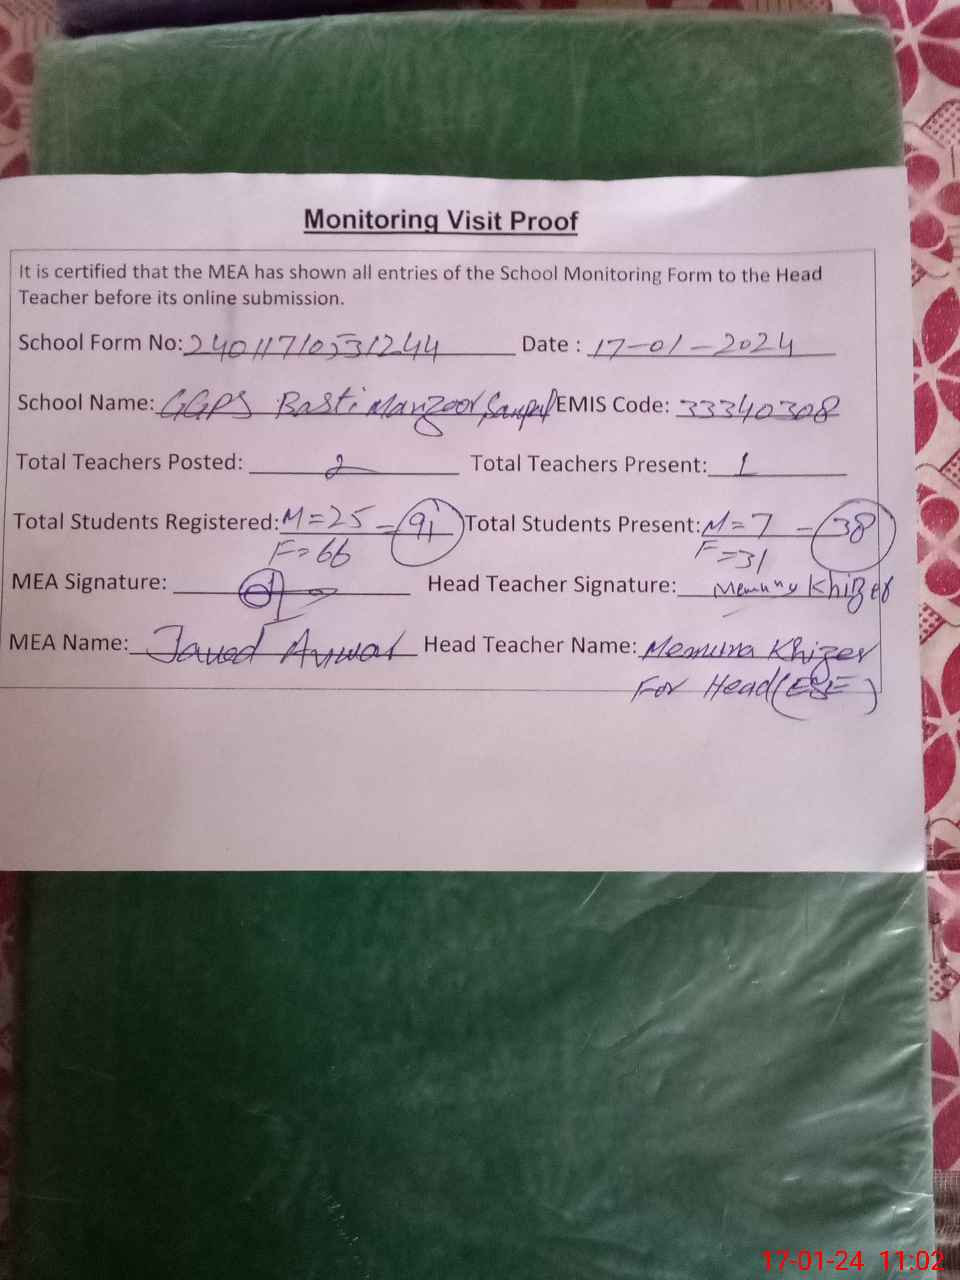 Monitoring Visit Proof
It is certified that the MEA has shown all entries of the School Monitoring Form to the Head
Teacher before its online submission.
School Form No: Date : 17-01-2024
School Name: GGPS Basti Manzoor EMIS Code: 33340308
Total Teachers Posted: 2 Total Teachers Present: 1
Total Students Registered: M=25 - 91 Total Students Present: M=7 - 38
F=66 F=31
MEA Signature: Head Teacher Signature: Khizer
MEA Name: Javed Anwar Head Teacher Name: Memuna Khizer
For Head (ESE)
17-01-24 11:02